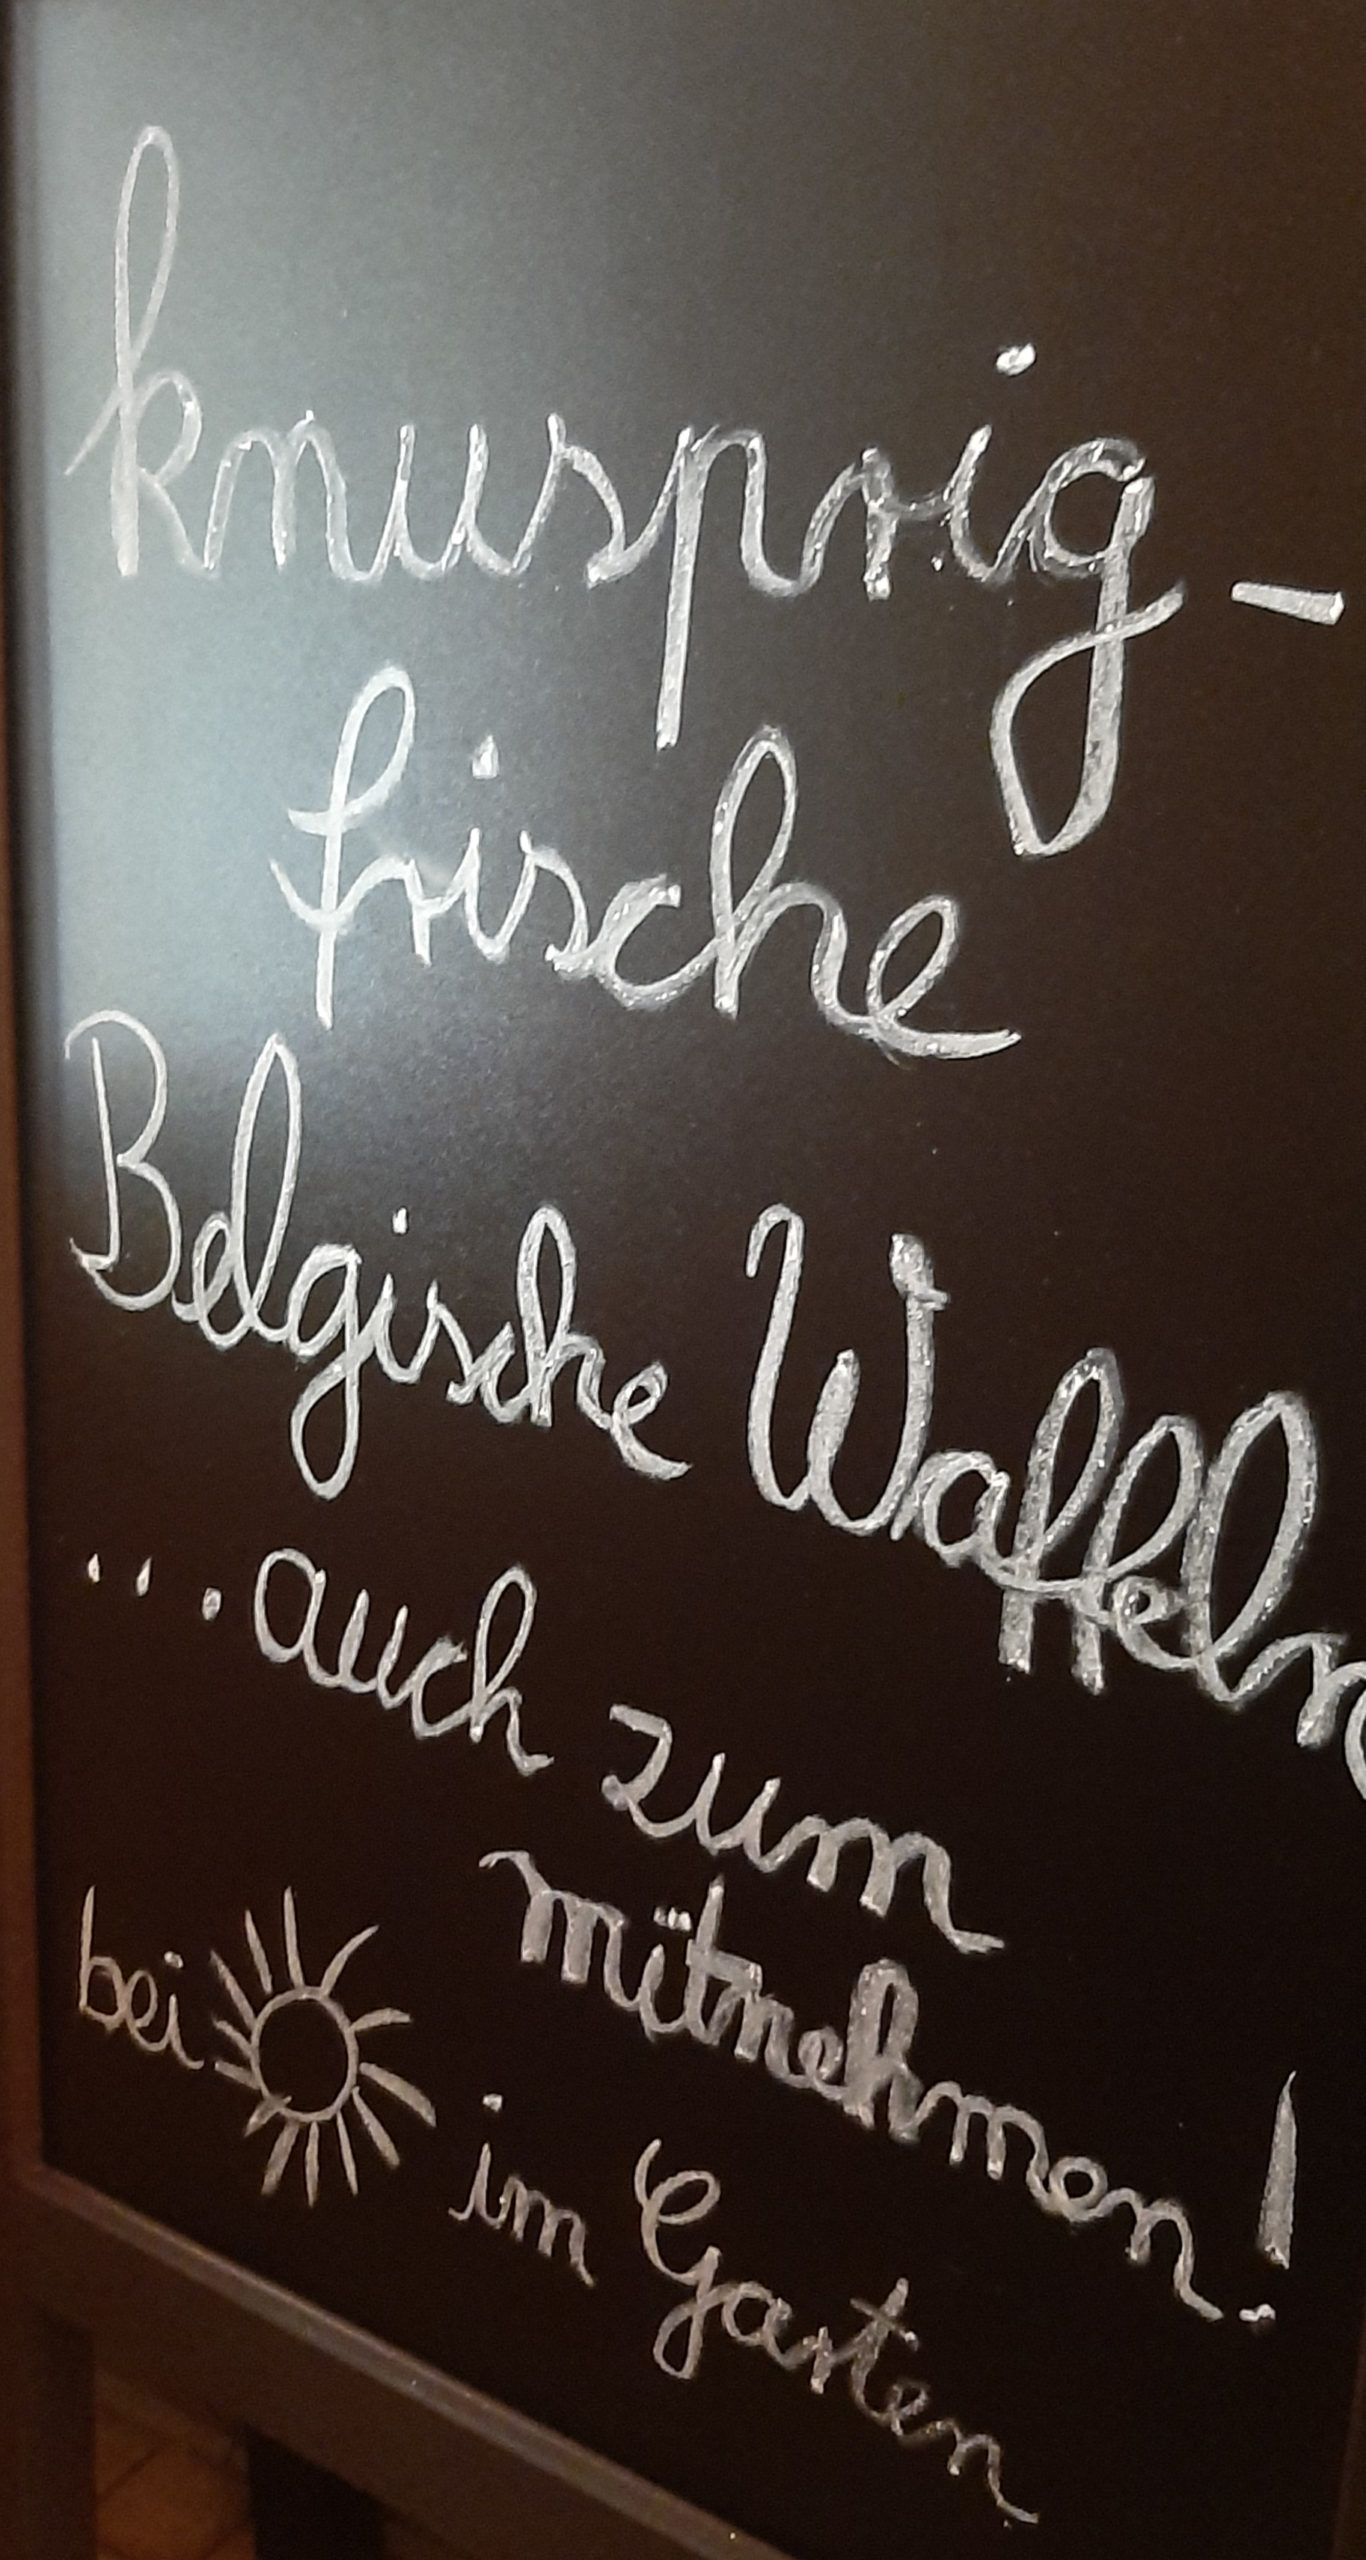 knusprig-
frische
Belgische Waffeln
...auch zum
mitnehmen!
bei im Garten